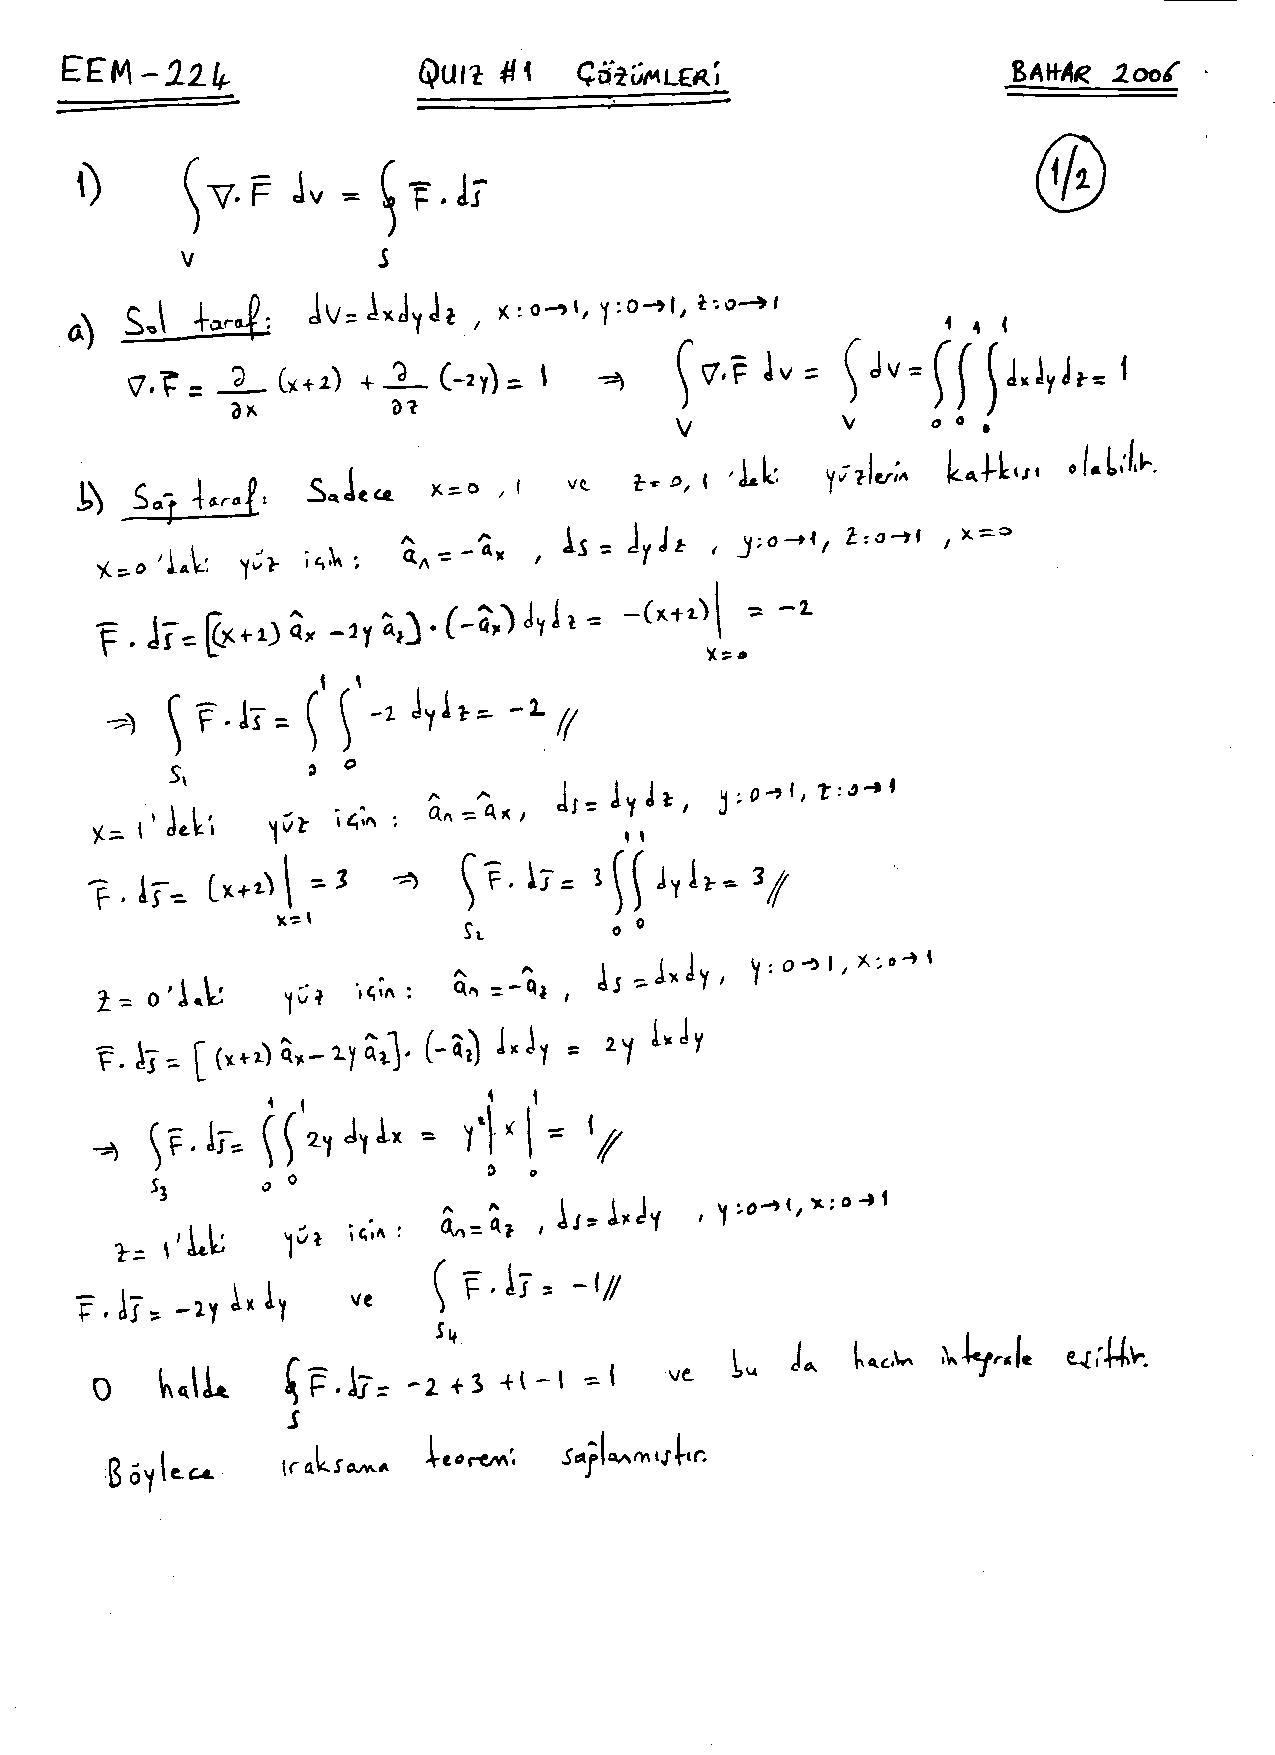 EEM-224 QUIZ #1 ÇÖZÜMLERİ BAHAR 2006
1/2
1) ∫_V ∇·F̄ dv = ∮_S F̄·ds̄
a) Sol taraf: dv=dxdydz, x:0→1, y:0→1, z:0→1
∇·F̄ = ∂/∂x (x+2) + ∂/∂z (-2y) = 1 ⇒ ∫_V ∇·F̄ dv = ∫_V dv = ∫_0^1 ∫_0^1 ∫_0^1 dxdydz = 1
b) Sağ taraf: Sadece x=0,1 ve z=0,1 'deki yüzlerin katkısı olabilir.
x=0'daki yüz için: â_n = -â_x, ds = dydz, y:0→1, z:0→1, x=0
F̄·ds̄ = [(x+2) â_x - 2y â_z]·(-â_x) dydz = -(x+2)|_{x=0} = -2
⇒ ∫_{S_1} F̄·ds̄ = ∫_0^1 ∫_0^1 -2 dydz = -2 //
x=1'deki yüz için: â_n = â_x, ds = dydz, y:0→1, z:0→1
F̄·ds̄ = (x+2)|_{x=1} = 3 ⇒ ∫_{S_2} F̄·ds̄ = 3 ∫_0^1 ∫_0^1 dydz = 3 //
z=0'daki yüz için: â_n = -â_z, ds = dxdy, y:0→1, x:0→1
F̄·ds̄ = [(x+2) â_x - 2y â_z]·(-â_z) dxdy = 2y dxdy
⇒ ∫_{S_3} F̄·ds̄ = ∫_0^1 ∫_0^1 2y dydx = y²|_0^1 x|_0^1 = 1 //
z=1'deki yüz için: â_n = â_z, ds = dxdy, y:0→1, x:0→1
F̄·ds̄ = -2y dxdy ve ∫_{S_4} F̄·ds̄ = -1 //
O halde ∮_S F̄·ds̄ = -2+3+1-1 = 1 ve bu da hacim integrale eşittir.
Böylece ıraksama teoremi sağlanmıştır.